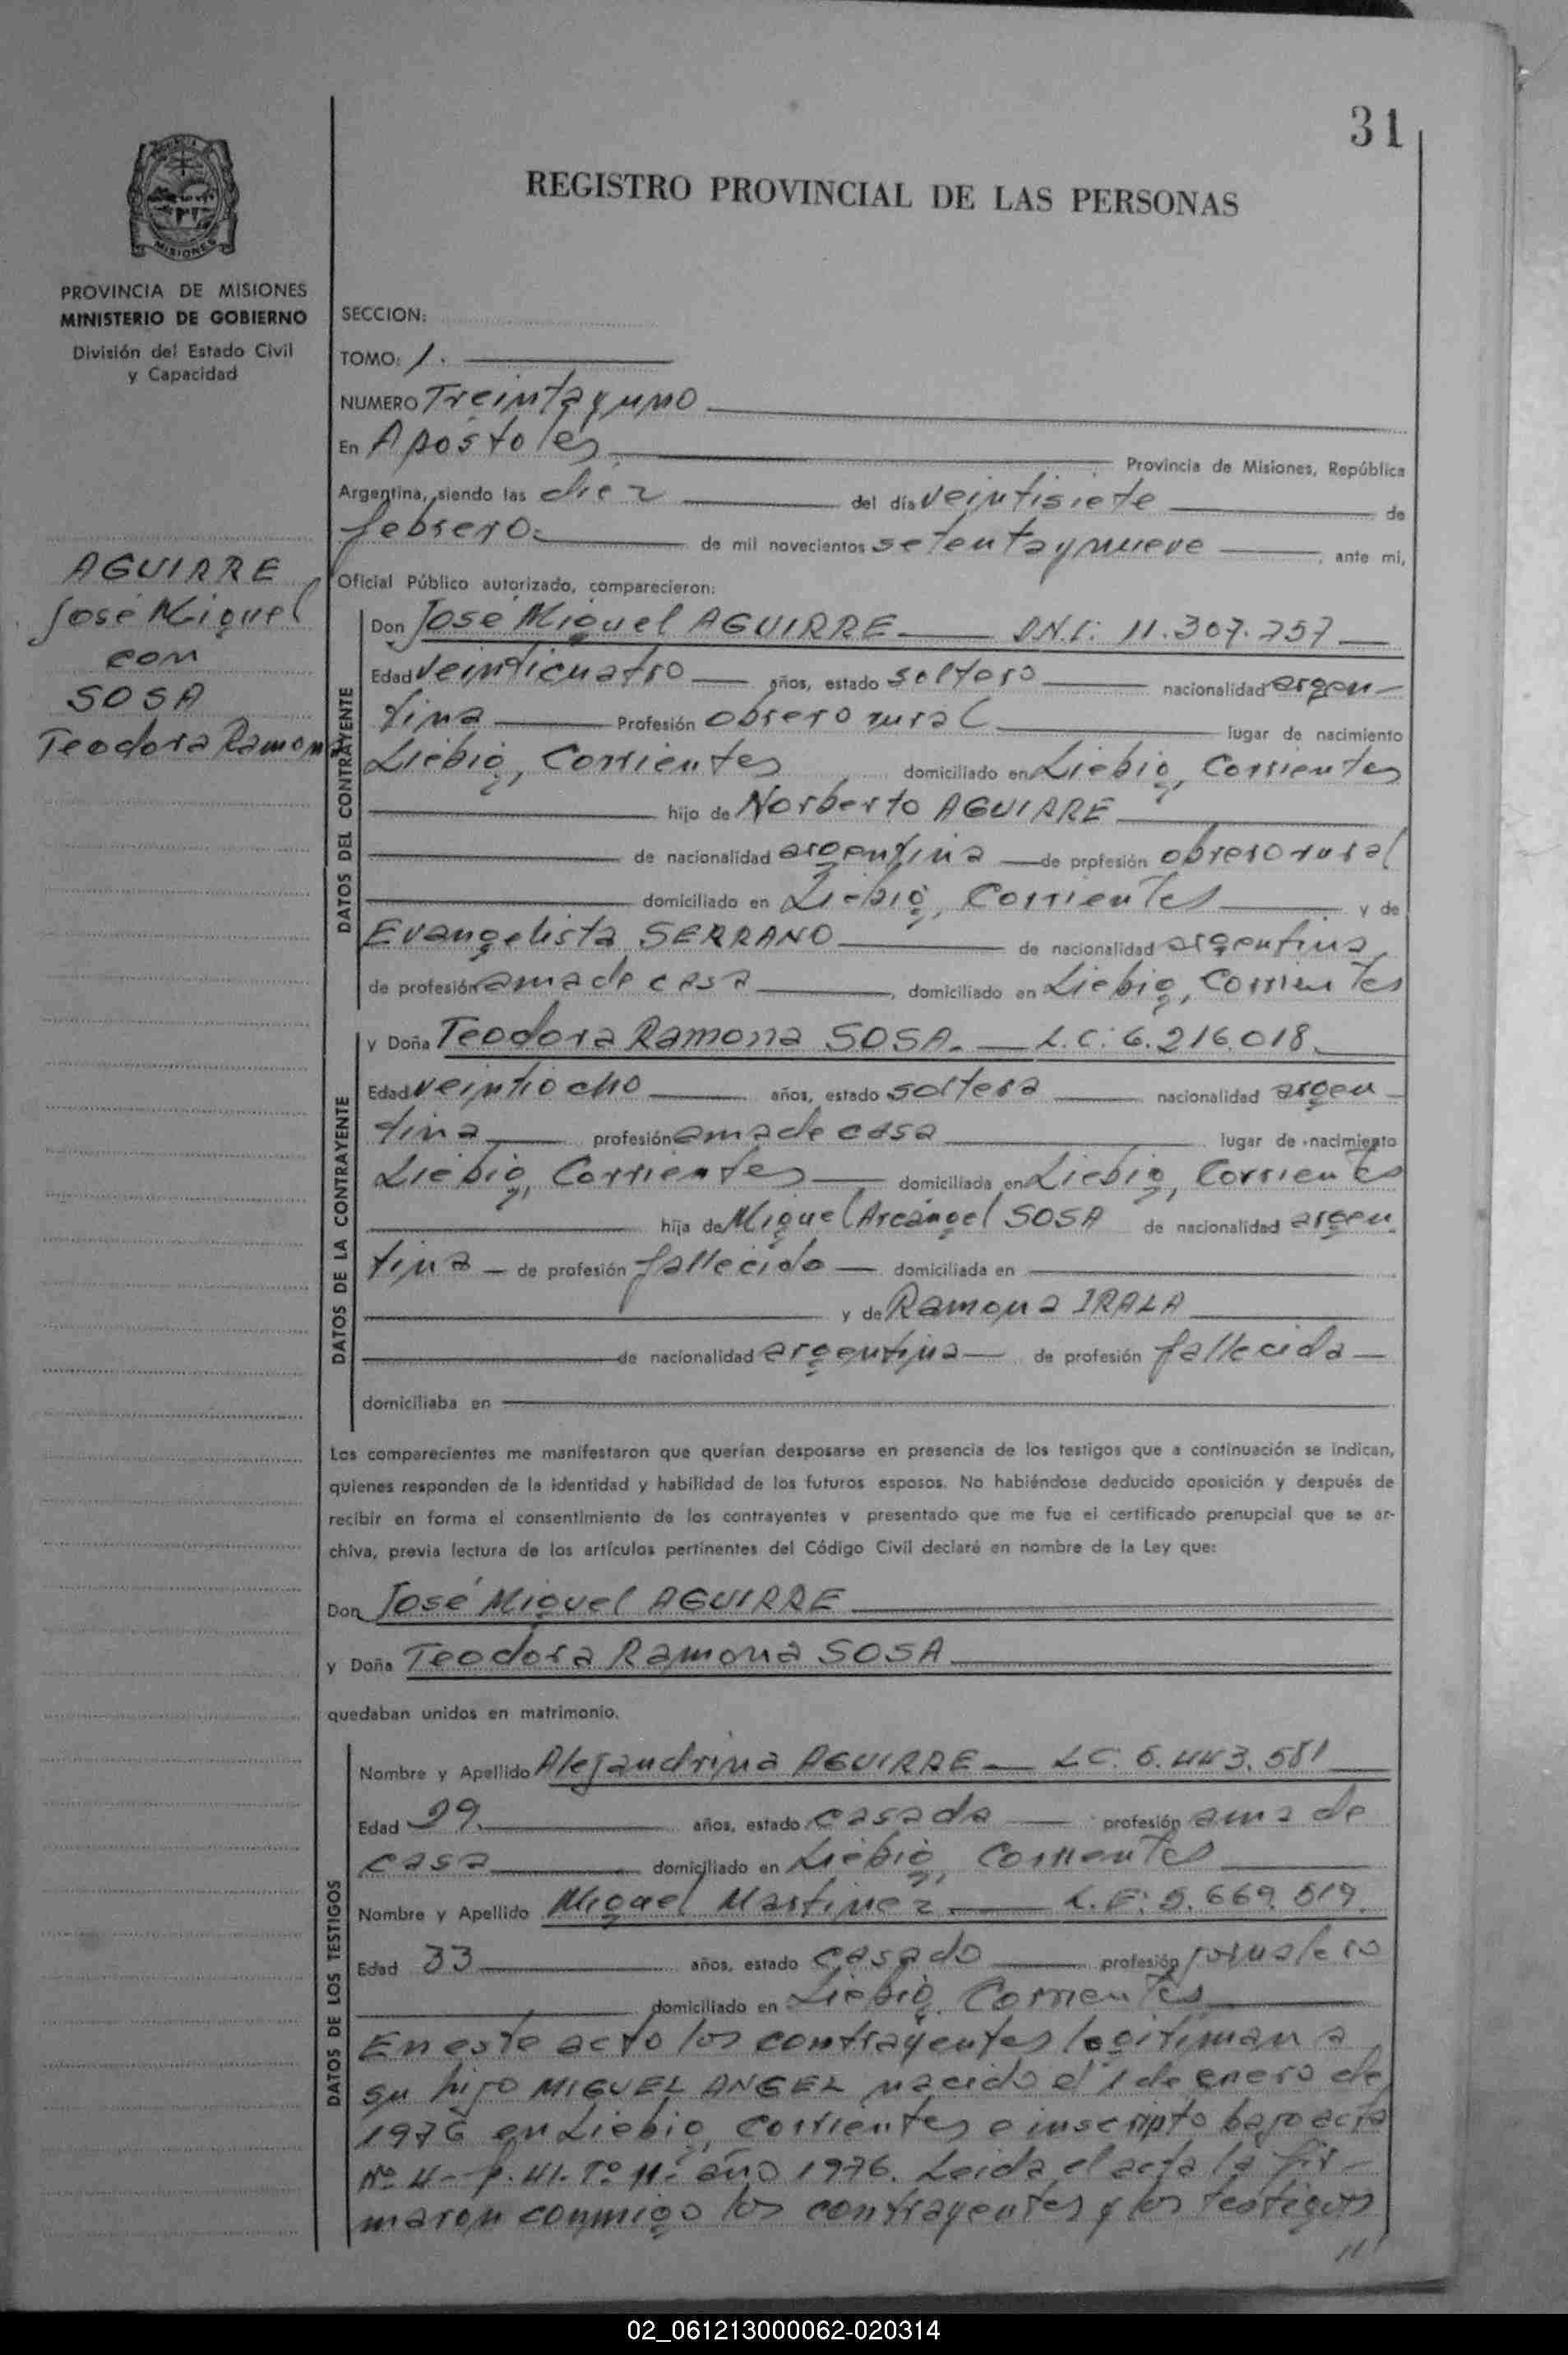 31
REGISTRO PROVINCIAL DE LAS PERSONAS
MISIONES
PROVINCIA DE MISIONES
MINISTERIO DE GOBIERNO
División del Estado Civil
y Capacidad
AGUIRRE
José Miguel
con
SOSA
Teodora Ramona
SECCION:
TOMO: 1.
NUMERO Treinta y uno
En Apóstoles Provincia de Misiones, República
Argentina, siendo las diez del día veintisiete de
febrero de mil novecientos setenta y nueve, ante mi,
Oficial Público autorizado, comparecieron:
DATOS DEL CONTRAYENTE
Don José Miguel AGUIRRE D.N.I: 11.307.757
Edad veinticuatro años, estado soltero nacionalidad argen-
tina Profesión obrero rural lugar de nacimiento
Liebig, Corrientes domiciliado en Liebig, Corrientes
hijo de Norberto AGUIRRE
de nacionalidad argentina de profesión obrero rural
domiciliado en Liebig, Corrientes y de
Evangelista SERRANO de nacionalidad argentina
de profesión ama de casa, domiciliado en Liebig, Corrientes
DATOS DE LA CONTRAYENTE
y Doña Teodora Ramona SOSA. L.C: 6.216.018.
Edad veintiocho años, estado soltera nacionalidad argen-
tina profesión ama de casa lugar de nacimiento
Liebig, Corrientes domiciliada en Liebig, Corrientes
hija de Miguel Arcángel SOSA de nacionalidad argen
tina de profesión fallecido domiciliada en
y de Ramona IRALA
de nacionalidad argentina de profesión fallecida
domiciliaba en
Los comparecientes me manifestaron que querían desposarse en presencia de los testigos que a continuación se indican,
quienes responden de la identidad y habilidad de los futuros esposos. No habiéndose deducido oposición y después de
recibir en forma el consentimiento de los contrayentes y presentado que me fue el certificado prenupcial que se ar-
chiva, previa lectura de los artículos pertinentes del Código Civil declaré en nombre de la Ley que:
Don José Miguel AGUIRRE
y Doña Teodora Ramona SOSA
quedaban unidos en matrimonio.
DATOS DE LOS TESTIGOS
Nombre y Apellido Alejandrina AGUIRRE LC. 6.443.581
Edad 29. años, estado casada profesión ama de
casa domiciliado en Liebig, Corrientes
Nombre y Apellido Miguel Martinez L.E: 5.669.519.
Edad 33 años, estado casado profesión jornalero
domiciliado en Liebig, Corrientes
En este acto los contrayentes legitiman a
su hijo MIGUEL ANGEL nacido el 1 de enero de
1976 en Liebig, Corrientes e inscripto bajo acta
Nº 4- f. 41. Tº 11. año 1976. Leida el acta la fir-
maron conmigo los contrayentes y los testigos
//
02_061213000062-020314